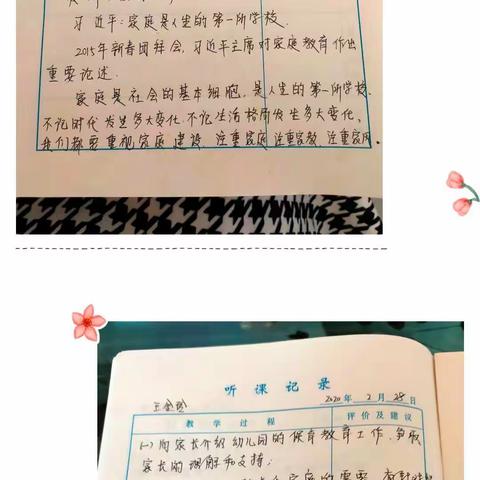 习近平:家庭是人生的第一所学校.
2015年新春团拜会,习近平主席对家庭教育作出
重要论述.
家庭是社会的基本细胞,是人生的第一所学校.
不论时代发生多大变化.不论生活格局发生多大变化,
我们都要重视家庭建设.注重家庭注重家教,注重家风.
听课记录
2020年2月28日
教学过程
评价及建议
(一)向家长介绍幼儿园的保育教育工作,争取
家长的理解和支持;
家庭的需要